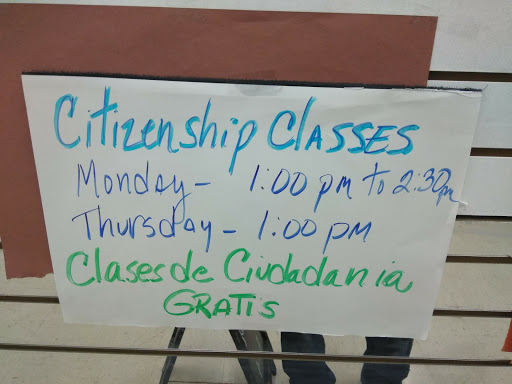 Citizenship CLASSES
Monday - 1:00 pm to 2:30pm
Thursday - 1:00 pm
Clases de Ciudadania
GRATIS